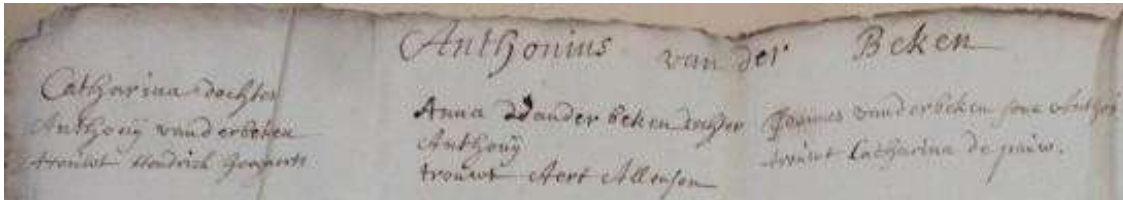 Anthonius van der Beken
Catharina dochter
Anthonÿ vanderbeken
trouwt Hendrick
Anna Vander beken dochter
Anthonÿ
trouwt Aert Allensen
Joannes vanderbeken sone Anthonÿ
trouwt Catharina de pauw.